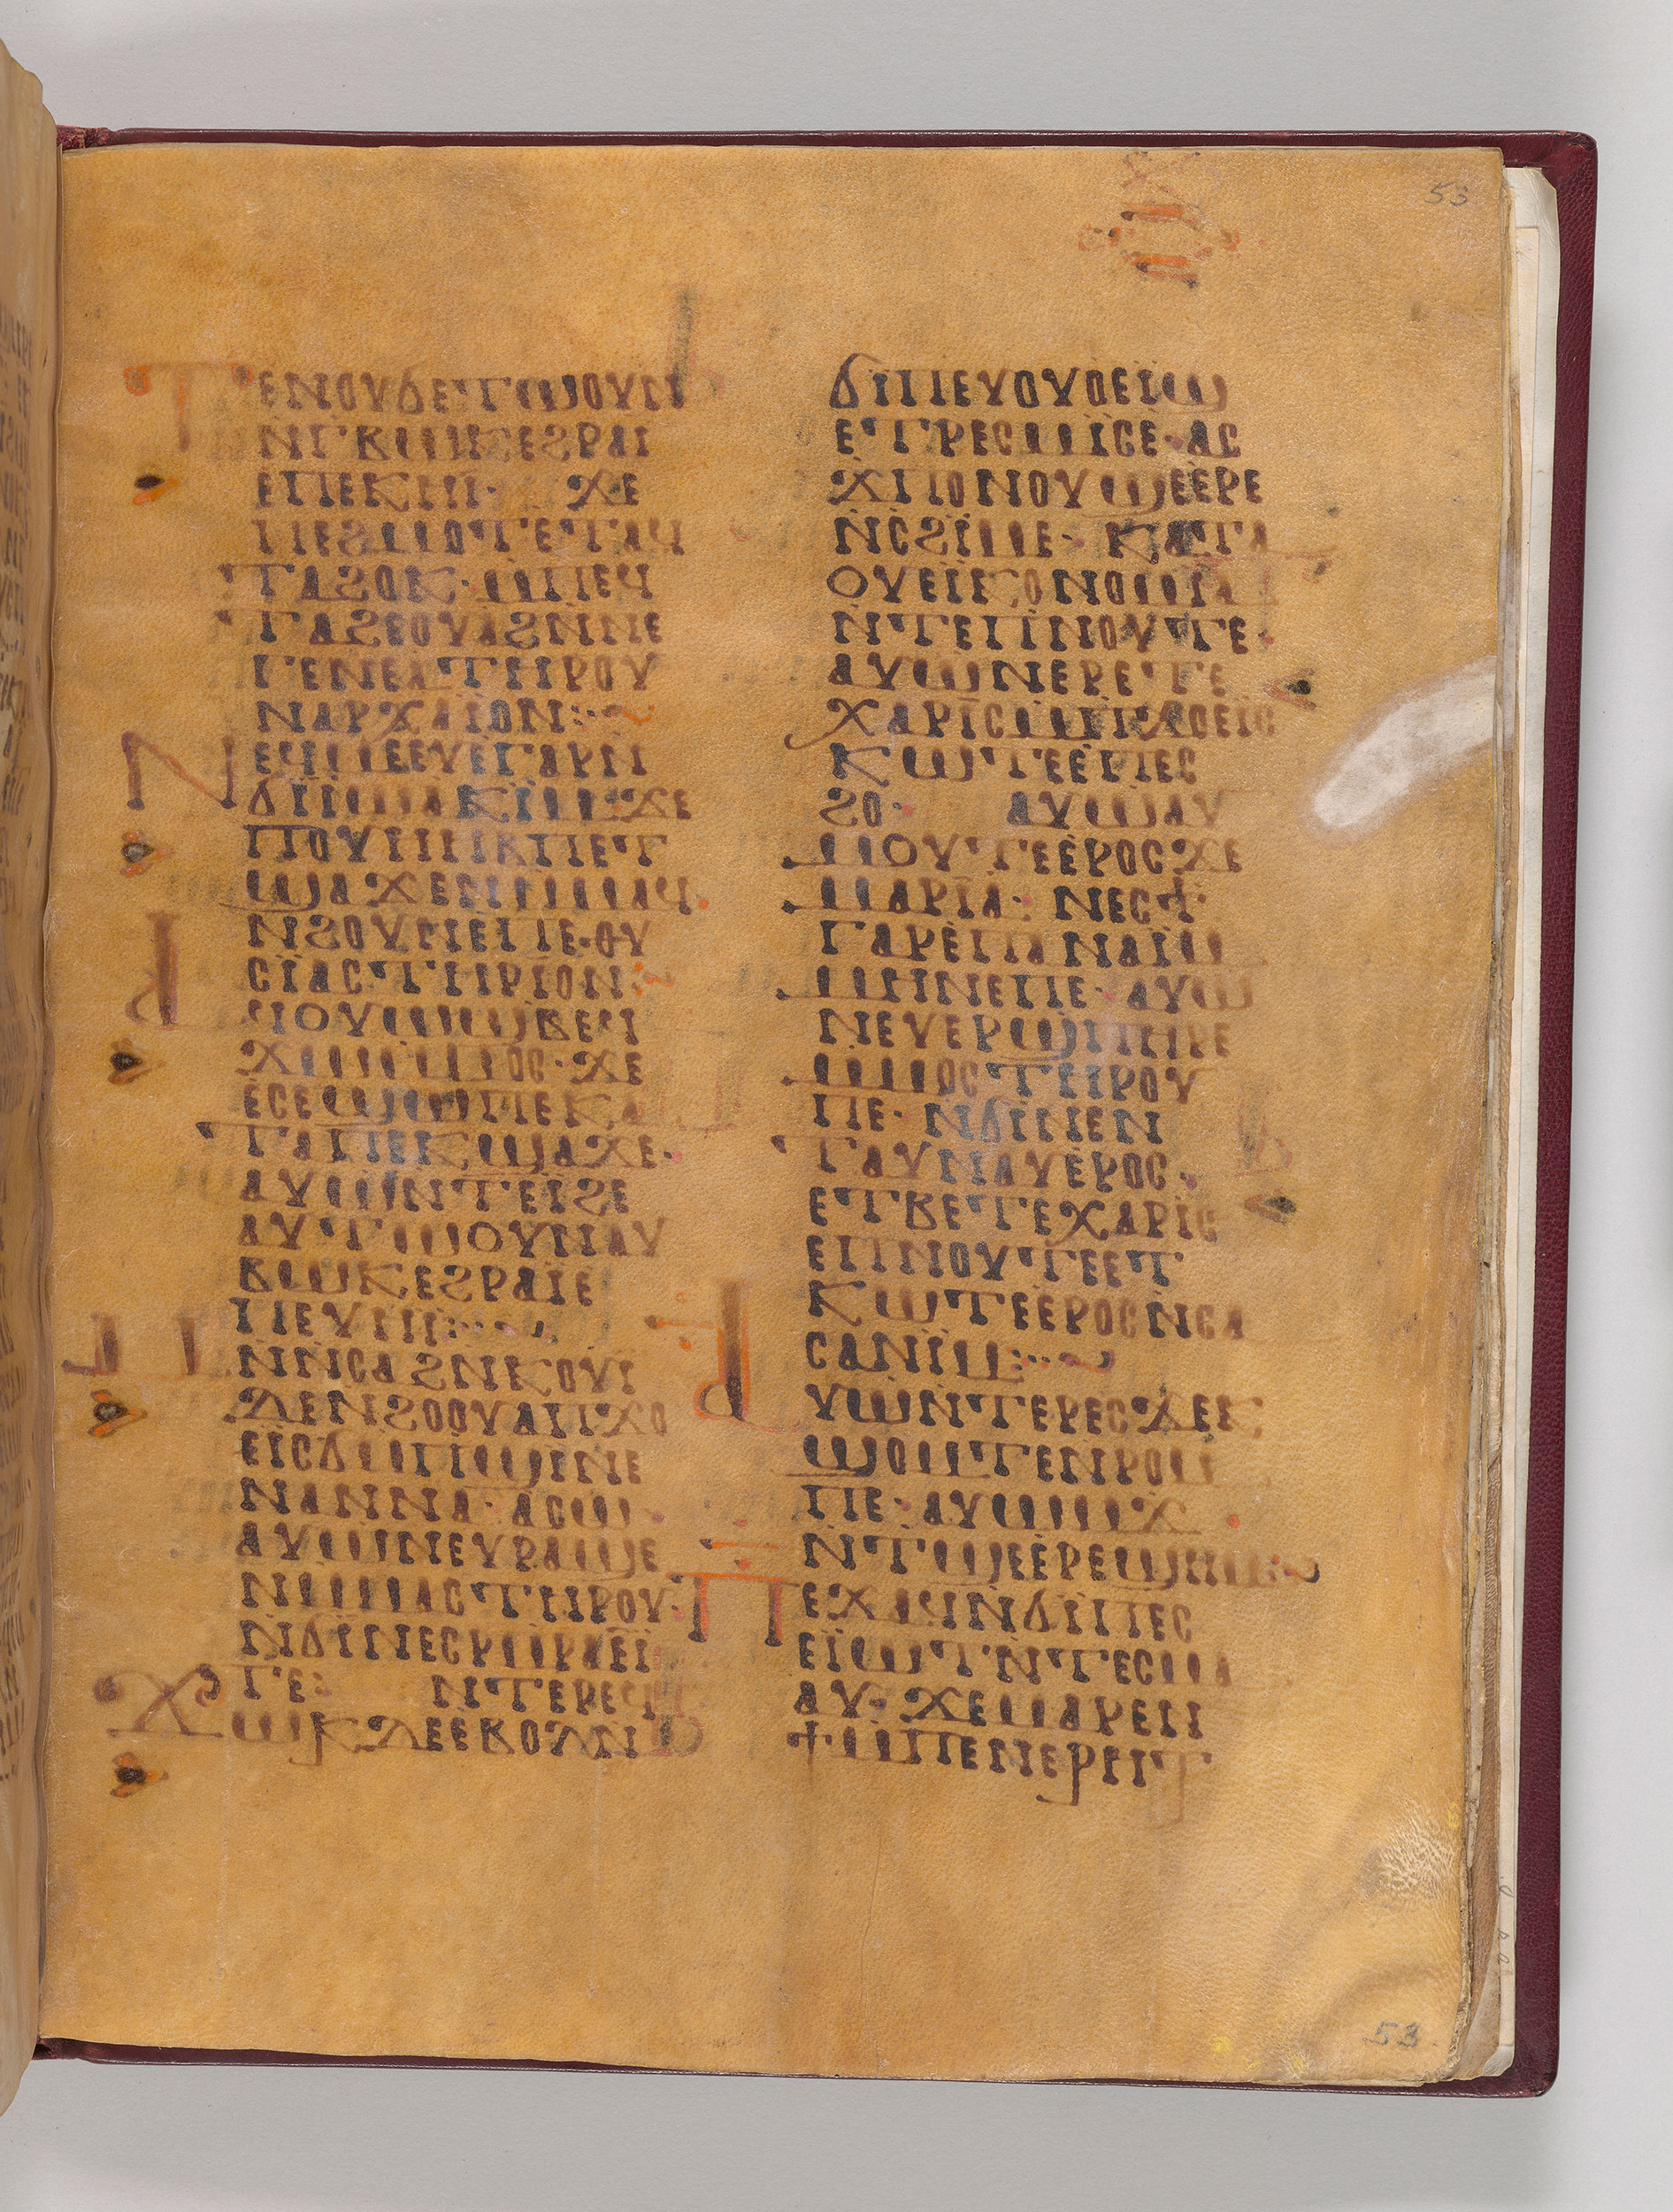 53
ⲦⲈⲚⲞⲨϬⲈⲦⲰⲞⲨⲚ
ⲚⲄⲂⲰⲔⲈϨⲢⲀⲒ
ⲈⲠⲈⲔⲎⲒ· ϪⲈ
ⲠⲈϨⲘⲞⲦⲈⲦⲀϤ
ⲦⲀϨⲞⲔ· ⲘⲠⲈϤ
ⲦⲀϨⲈⲞⲨⲀϨⲚⲚⲈ
ⲄⲈⲚⲈⲀⲦⲎⲢⲞⲨ
ⲚⲀⲢⲬⲀⲒⲞⲚ:
ⲚⲈϤⲘⲈⲈⲨⲈⲄⲀⲢⲚ
ϬⲒⲒⲰⲀⲔⲒⲘ· ϪⲈ
ⲠⲞⲨⲎⲎⲂⲠⲈⲦ
ϢⲀϪⲈⲚⲘⲘⲀϤ·
ⲚϨⲞⲨⲚⲈⲠⲈ·ⲐⲨ
ⲤⲒⲀⲤⲦⲎⲢⲒⲞⲚ:
ⲀϤⲞⲨⲰϢⲂⲈϤ
ϪⲰⲘⲘⲞⲤ· ϪⲈ
ⲈⲤⲈϢⲰⲠⲈⲔⲀ
ⲦⲀⲠⲈⲔϢⲀϪⲈ·
ⲀⲨⲰⲚⲦⲈⲒϨⲈ
ⲀⲨⲦⲰⲞⲨⲚⲀⲨ
ⲂⲰⲔⲈϨⲢⲀⲒⲈ
ⲠⲈⲨⲎⲒ:
ⲘⲚⲚⲤⲀϨⲚⲔⲞⲨⲒ
ⲆⲈⲚϨⲞⲞⲨⲀⲠϪⲞ
ⲈⲒⲤϬⲘⲠϢⲒⲚⲈ
ⲚⲀⲚⲚⲀ· ⲀⲤⲰ
ⲀⲨⲰⲚⲈⲨⲢⲀϢⲈ
ⲚⲘⲘⲀⲤⲦⲎⲢⲞⲨ·
ⲚϬⲒⲚⲈⲤⲢⲘⲢⲀⲈⲒ
ⲦⲈ: ⲚⲦⲈⲢⲈϤ
ϪⲰⲔⲆⲈⲈⲂⲞⲖⲚ
ϬⲒⲠⲈⲨⲞⲨⲞⲈⲒϢ
ⲈⲦⲢⲈⲤⲘⲒⲤⲈ· ⲀⲤ
ϪⲠⲞⲚⲞⲨϢⲈⲈⲢⲈ
ⲚⲤϨⲒⲘⲈ· ⲔⲀⲦⲀ
ⲞⲨⲈⲒⲔⲞⲚⲞⲘⲒⲀ
ⲚⲦⲈⲠⲚⲞⲨⲦⲈ·
ⲀⲨⲰⲚⲈⲢⲈⲦⲈ
ⲬⲀⲢⲒⲤⲘⲠϪⲞⲈⲒⲤ
ⲔⲰⲦⲈⲈⲠⲈⲤ
ϨⲞ· ⲀⲨⲰⲀⲨ
ⲘⲞⲨⲦⲈⲈⲢⲞⲤϪⲈ
ⲘⲀⲢⲒⲀ· ⲚⲈⲤϮ
ⲄⲀⲢⲈⲠⲀⲚⲀⲒⲘ
ⲘⲎⲚⲈⲠⲈ· ⲀⲨⲰ
ⲚⲈⲨⲈⲢϢⲠⲎⲢⲈ
ⲘⲘⲞⲤⲦⲎⲢⲞⲨ
ⲠⲈ· ⲚϬⲒⲚⲈⲚ
ⲦⲀⲨⲚⲀⲨⲈⲢⲞⲤ·
ⲈⲦⲂⲈⲦⲈⲬⲀⲢⲒⲤ
ⲈⲠⲚⲞⲨⲦⲈⲈⲦ
ⲔⲰⲦⲈⲈⲢⲞⲤⲚⲤⲀ
ⲤⲀⲚⲒⲘ:
ⲀⲨⲰⲚⲦⲈⲢⲈⲤϪⲈⲔ
ϢⲞⲘⲦⲈⲚⲢⲞⲘ
ⲠⲈ· ⲀⲨⲰⲘⲬ
ⲚⲦϢⲈⲈⲢⲈϢⲎⲘ:
ⲠⲈϪⲀϤⲚϬⲒⲠⲈⲤ
ⲈⲒⲰⲦⲚⲦⲈⲤⲘⲀ
ⲀⲨ· ϪⲈⲘⲀⲢⲈⲚ
ϮⲘⲠⲈⲚⲈⲢⲎⲦ
53